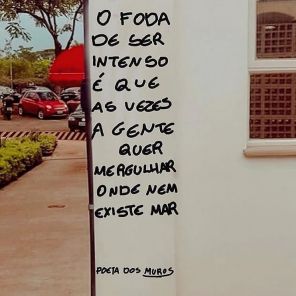 O FODA
DE SER
INTENSO
É QUE
AS VEZES
A GENTE
QUER
MERGULHAR
ONDE NEM
EXISTE MAR
POETA DOS MUROS